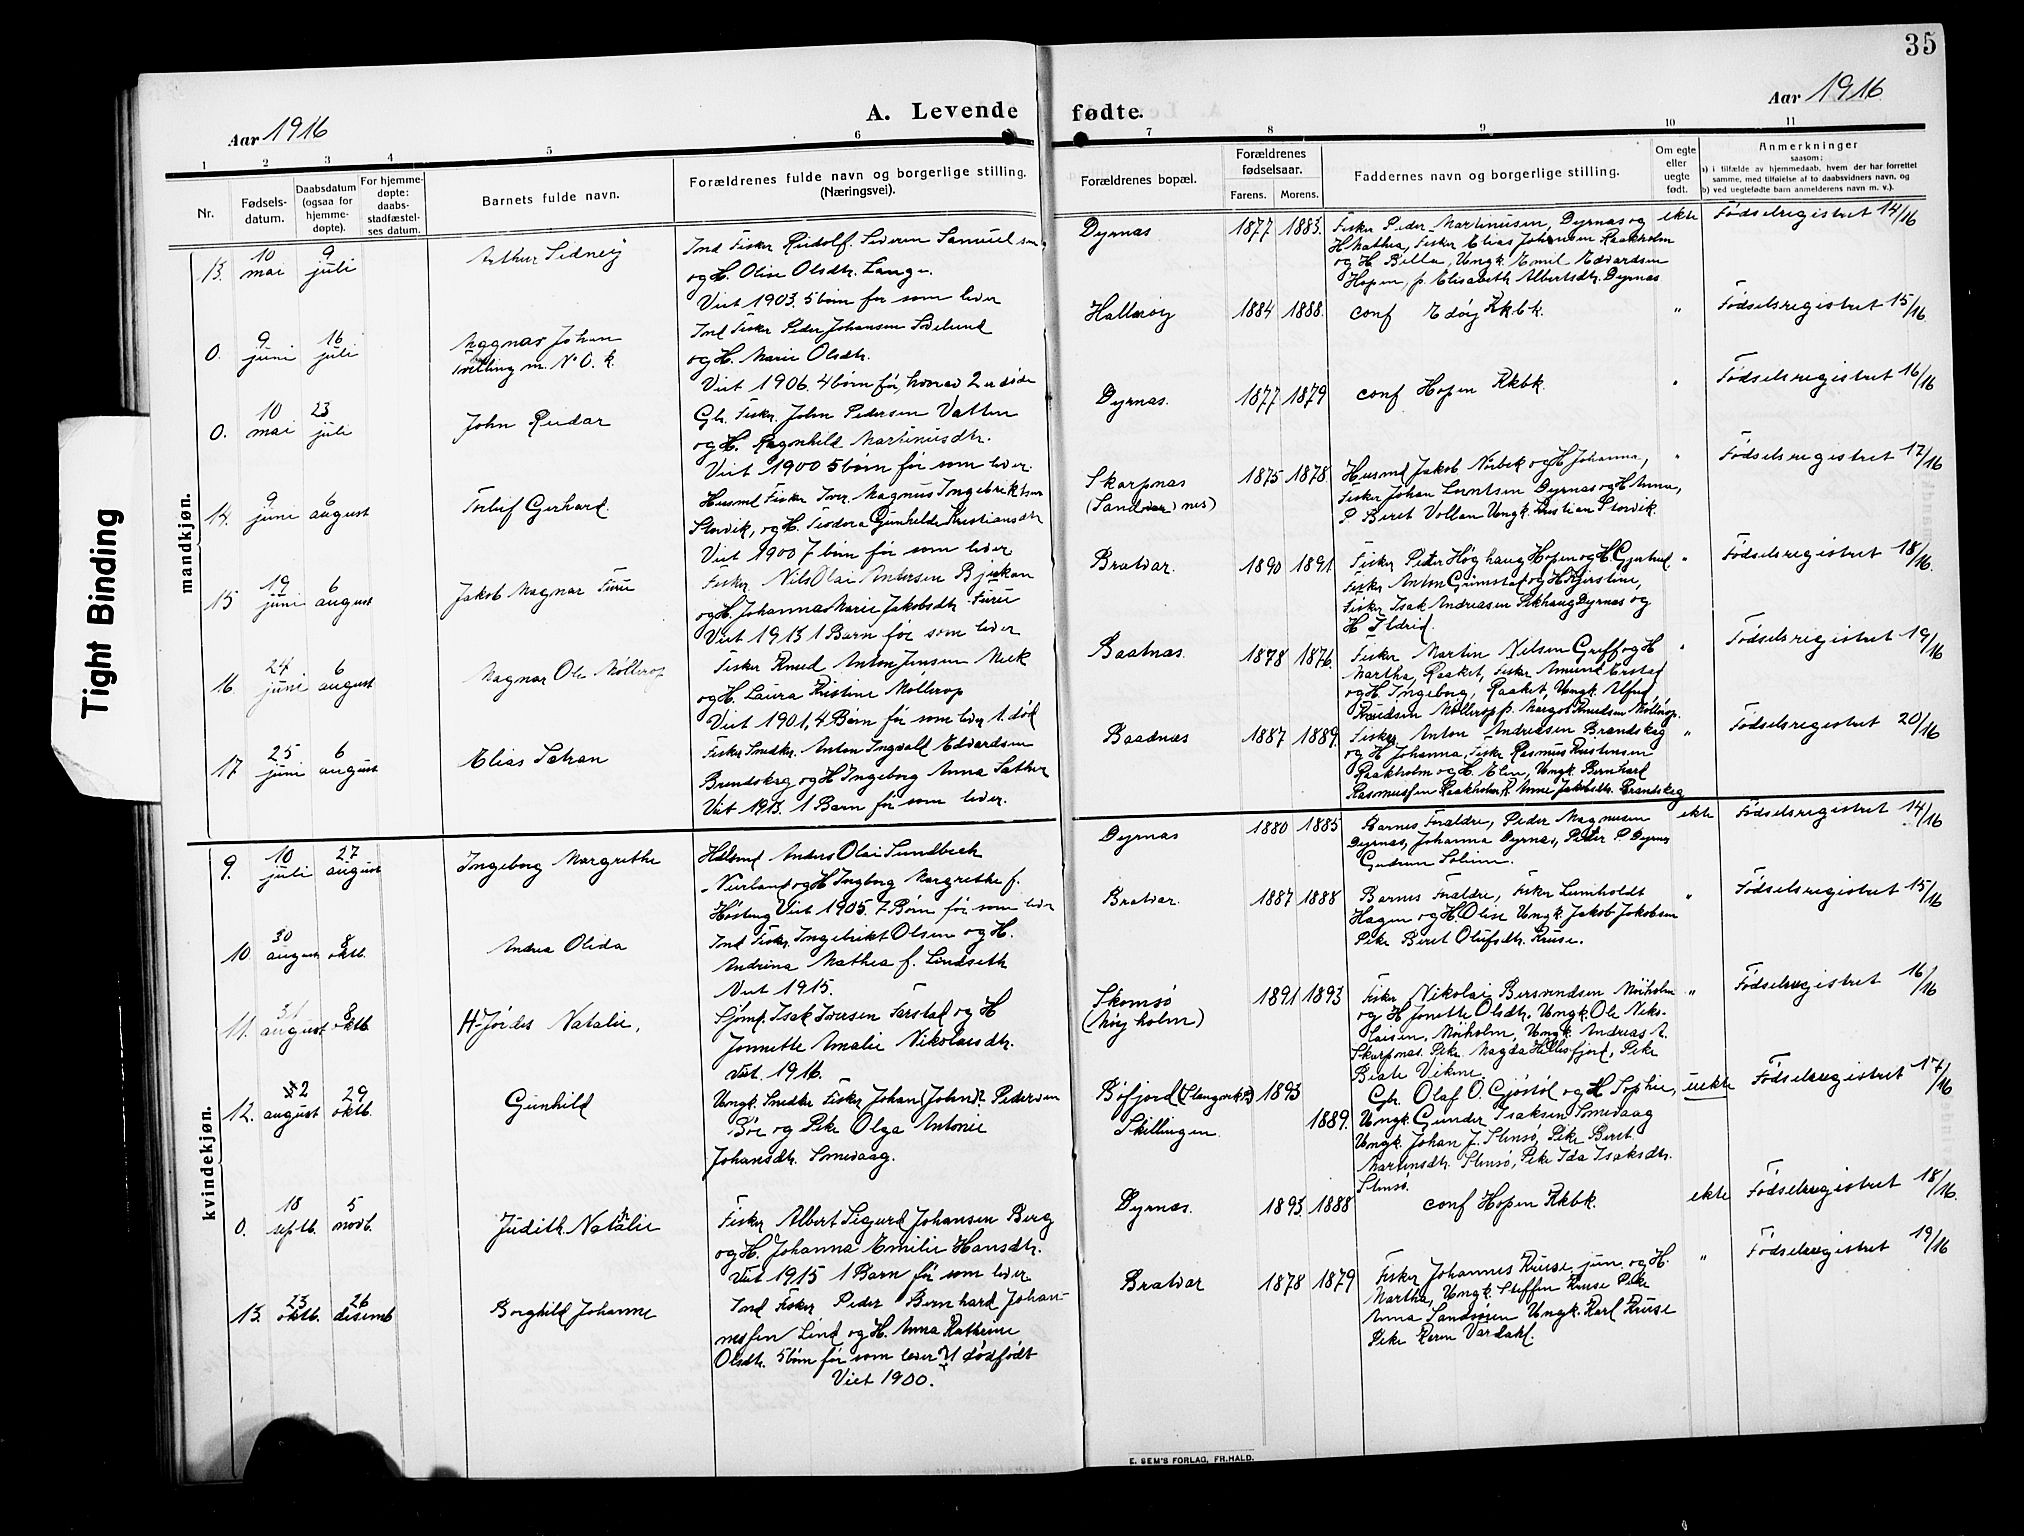 35
Aar 1916
A. Levende fødte.
Aar 1916
1 2 3 4 5 6 7 8 9 10 11
Nr.
Fødsels-
datum.
Daabsdatum
(ogsaa for
hjemme-
døpte).
For hjemme-
døpte:
daabs-
stadfæstel-
ses datum.
Barnets fulde navn.
Forældrenes fulde navn og borgerlige stilling.
(Næringsvei).
Forældrenes bopæl.
Forældrenes
fødselsaar.
Farens. Morens.
Faddernes navn og borgerlige stilling.
Om egte
eller
uegte
født.
Anmerkninger
saasom:
a) i tilfælde av hjemmedaab, hvem der har forrettet
samme, med tilføielse af to daabsvidners navn, og
b) ved uegtefødte barn anmelderens navn m. v.).
mandkjøn.
13. 10 mai 9 juli
Arthur Sidney
Ind Fisker Rudolf Severin Samuelsen
og H. Olise Olsdtr. Lange.
Viet 1903. 5 børn før som lever
Dyrnas 1877 1883.
Fisker Peder Martinusen, Dyrnas og
H Mathea, Fisker Elias Johansen Raakholm
og H Billa, Ungk. Emil Edvardsen
Hopen, p. Elisabeth Albertsdtr. Dyrnas
ekte
Fødselsregistret 14/16
0. 9 juni 16 juli
Magnas Johan
Tvilling m. N° 0. k.
Ind Fisker Peder Johansen
og H. Marie Olsdtr.
Viet 1906. 4 børn før, hvorav 2 er døde
Hallarøy 1884 1888.
conf Edøy Kkbk.
"
Fødselsregistret 15/16.
0. 10 mai 23 juli
John Reidar
Gbr. Fisker John Pedersen Vatten
og H. Ragnhild Martinusdtr.
Viet 1900 5 børn før som lever.
Dyrnas. 1877 1879
conf Hopen Kkbk.
"
Fødselsregistret 16/16
14. 9 juni 6 august
Torleif Gerhard.
Husmd Fisker Iver Magnus Ingebriktsen
Storvik, og H. Teodora Gunhilde Kristiansdtr
Viet 1900 7 børn før som lever
Skarpnas
1875 1878
Husmd Jakob Norbek og H Johanna,
Fisker Johan Lorntsen Dyrnas og H Anna,
P. Beret Vollan Ungk. Kristian Storvik.
"
Fødselsregistret 17/16
15 19 juni 6 august
Jakob Magnar Furu
Fisker Nils Olai Andersen Bjerkan
og H. Johanna Marie Jakobsdtr Furu
Viet 1913 1 Barn før som lever
Bratvar. 1890 1891
Fisker Peder Høghaug Hopen og H Gjertrud
Fisker Anton Grimstad og H Kjerstine,
Fisker Isak Andreasen Dyrnas og
H Ildrid.
"
Fødselsregistret 18/16.
16. 24 juni 6 august
Magnar Ole Møllerop
Fisker Knud Anton Jensen Meek
og H. Laura Kristine Møllerop
Viet 1901, 4 Børn før som lever 1. død
Baatnas. 1878 1876.
Fisker Martin Nilsen Greff og H
Martha, Raaket, Fisker Amund Ersted
og H. Ingeborg, Raaket, Ungk. Alfred
Knudsen Møllerop p. Margot Knudsen Møllerop.
"
Fødselsregistret 19/16
17 25 juni 6 august
Elias Satran
Fisker Snedkr. Anton Ingvald Edvardsen
Brandskag og H Ingeborg Anna Sather
Viet 1913. 1 Barn før som lever.
Baadnas 1887 1889.
Fisker Anton Andreasen Brandskag
og H Johanna, Fisker Rasmus Kristensen
Raakholm og H. Elen, Ungk. Bernhard
Rasmussen Raakholm, P. Anne Jakobsdtr. Brandskag
"
Fødselsregistret 20/16
kvindekjøn.
9. 10 juli 27 august
Ingeborg Margrethe
Husmd Anders Olai Sundbeck
og H Ingborg Margrethe f.
Viet 1905. 7 Børn før som lever
Dyrnas 1880 1885
Barnes Foraldre, Peder Magnusen
Dyrnas, Johanna Dyrnas, Petter P. Dyrnas
Gudrun Solium.
ekte
Fødselsregistret 14/16
10. 30 august 8 oktb.
Andrea Olida
Ind Fisker Ingebrikt Olsen og H.
Andrina Mathea f. Lindseth
Viet 1915.
Bratvar. 1887 1888
Barnes Foraldre, Fisker Lumholdt
Hagen og H. Olise Ungk. Jakob Jakobsen
Pike Beret Olufsdtr. Kruse.
"
Fødselsregistret 15/16
11. 31 august 8 oktb.
Hjørdis Natalie,
Sjømd. Isak Iversen Farstad og H
Jonnette Amalie Nikolaisdtr.
Viet 1916.
Skomsø
(Møyholm)
1891 1893
Fisker Nikolai Bersvendsen Møiholm
og H Jonette Olsdtr. Ungk. Ole Niko-
laisen, Møiholm, Ungk. Andreas A.
Skarpnas. Pike Magda Hallesfjord, Pike
Beate Vikme.
"
Fødselsregistret 16/16
12. 22 august 29 oktb.
Gunhild
Ungk. Snedker Fisker Johan (John)? Pedersen
Bøe og Pike Olga Antonie
Johansdtr. Smevaag.
Bøfjord
Skillingen.
1893
1889.
Gbr. Olaf O. Gjøstøl og H Sophie,
Ungk. Gunder Isaksen Smevaag
Ungk. Johan J. Stensø, Pike Beret
Martinsdtr. Stensø, Pike Ida Isaksdtr.
Stensø.
uekte
Fødselsregistret 17/16
0. 18 septb. 5 novb.
Judith Natalie
Fisker Albert Sigurd Johansen Berg
og H. Johanna Emilie Hansdtr.
Viet 1915 1 Barn før som lever
Dyrnas. 1893 1888
conf Hopen Kkbk.
ekte
Fødselsregistret 18/16.
13. 23 oktb. 26 desemb
Borghild Johanne
Ind Fisker Peder Bernhard Johan-
nessen Lind og H. Anna Kathrine
Olsdtr. 5 børn før som lever 1 dødfødt
Viet 1900.
Bratvar 1878 1879
Fisker Johannes Kruse, jun. og H.
Martha, Ungk. Steffen Kruse Pike
Anna Sandsøien Ungk. Karl Kruse
Pike Karen Vardahl.
"
Fødselsregistret 19/16
E. SEM'S FORLAG, FR.HALD.
Tight Binding